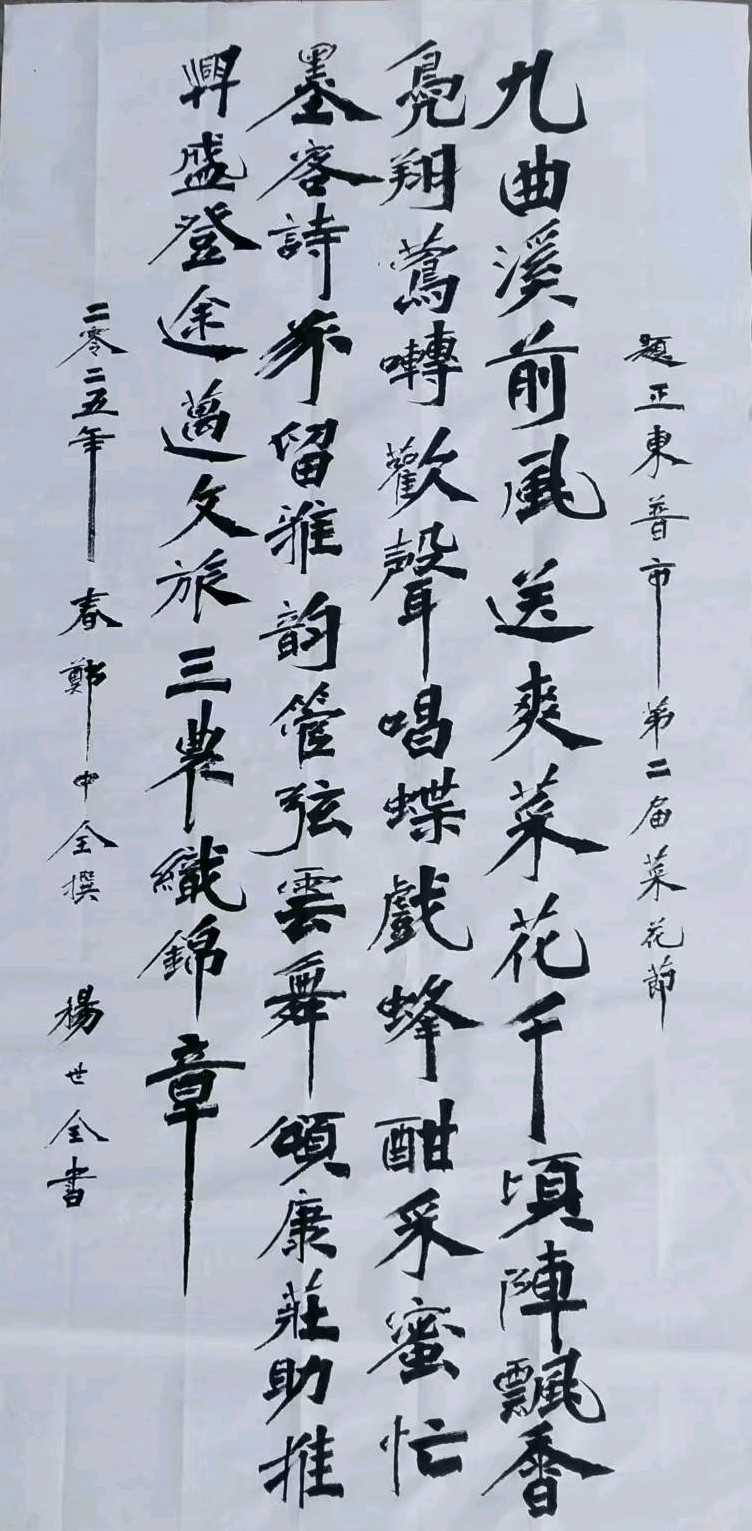 題正東普市第二屆菜花節
九曲溪前風送爽菜花千頃陣飄香
鳧翔鶯囀歡聲唱蝶戲蜂酣采蜜忙
墨客詩留雅韵管弦雲舞頌康莊助推
興盛登途邁文旅三農織錦章
二零二五年春鄭中全撰 楊世全書